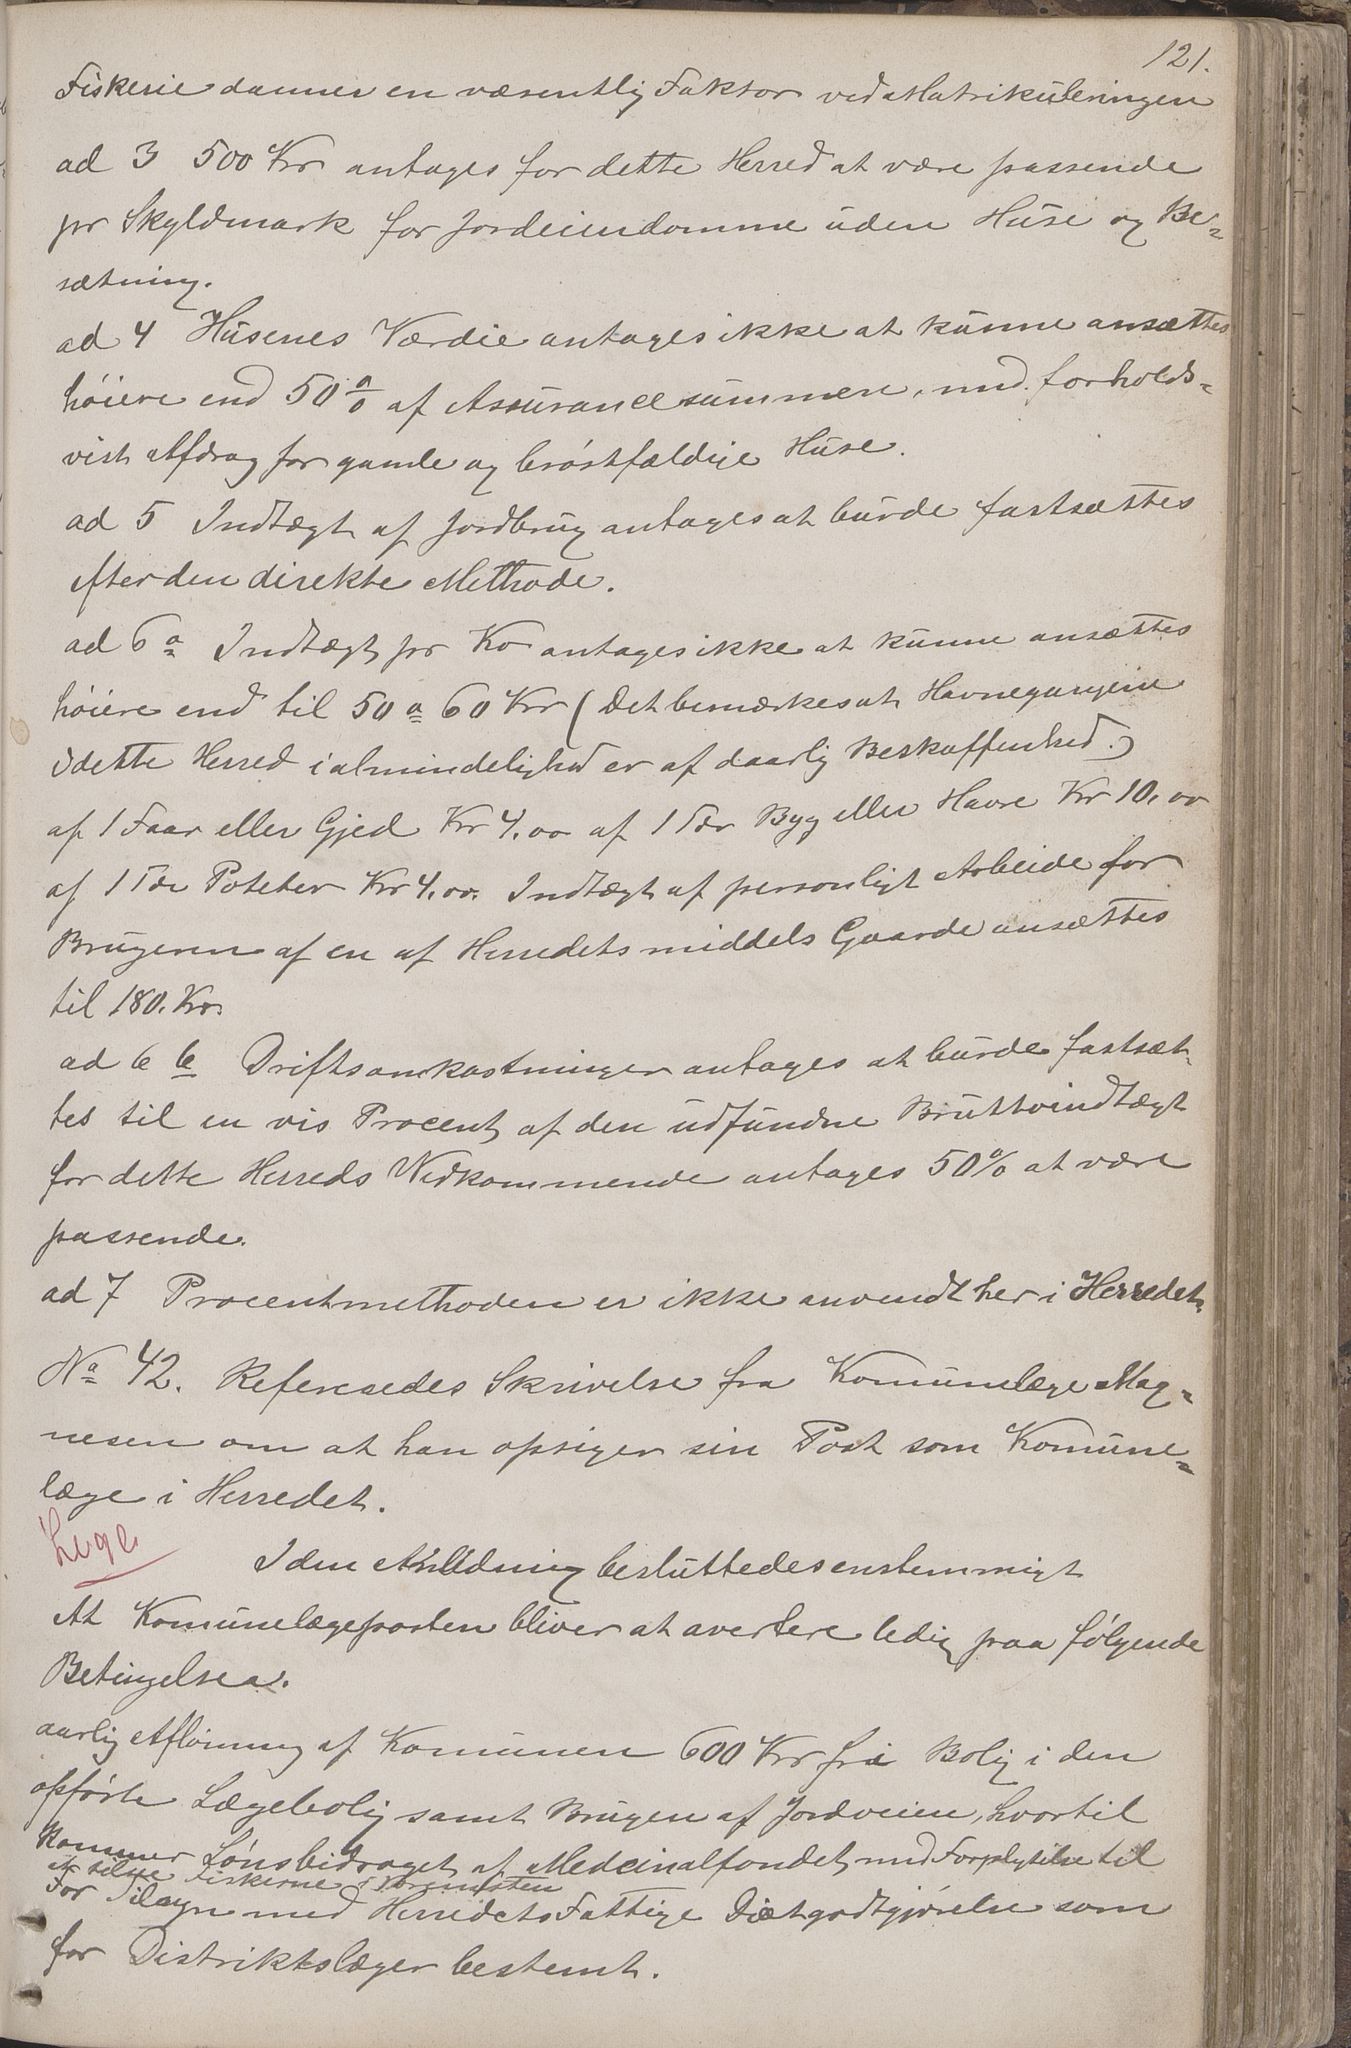 121.
Fiskerie danner en væsentlig Faktor ved Matrikuleringen
ad 3 500 Krr antages for dette Herred at være passende
pr Skyldmark for Jordeiendomme uden Huse og Be-
sætning.
ad 4 Husenes Værdie antages ikke at kunne ansættes
høiere end 50 % af Assurancesummen, med forholds-
vist Afdrag for gamle og brøstfældige Huse.
ad 5 Indtægt af Jordbrug antages at burde fastsættes
efter den direkte Methode.
ad 6 a Indtægt pr Ko antages ikke at kunne ansættes
høiere end til 50 a 60 Krr (Det bemærkes at Havnegangene
i dette Herred i almindelighed er af daarlig Beskaffenhed.)
af 1 Faar eller Gjed Kr 4.00 af 1 Tde Byg eller Havre Kr 10.00
af 1 Tde Poteter Krr 4.00. Indtægt af personligt Arbeide for
Brugeren af en af Herredets middels Gaarde ansættes
til 180. Kr.
ad 6 b Driftsomkostninger antages at burde fastsæt-
tes til en vis Procent af den udfundne Bruttoindtægt
for dette Herreds Vedkommende antages 50% at være
passende.
ad 7 Procentmethoden er ikke anvendt her i Herredet.
No 42. Refereredes Skrivelse fra Komunelæge Mag-
nesen om at han opsiger sin Post som Komune-
læge i Herredet.
Lege
I den Anledning besluttedes enstemmigt
At Komunelægeposten bliver at avertere ledig paa følgende
Betingelser.
aarlig Aflønning af Komunen 600 Krr fri Bolig i den
opførte Lægebolig samt Brugen af Jordveien, hvortil
kommer Lønsbidraget af Medcinalfondet med Forpligtelse til
at tilse Fiskerne
For Tilsyn med Herredets Fattige Diætgodtgjørelse som
for Distriktslæger bestemt.